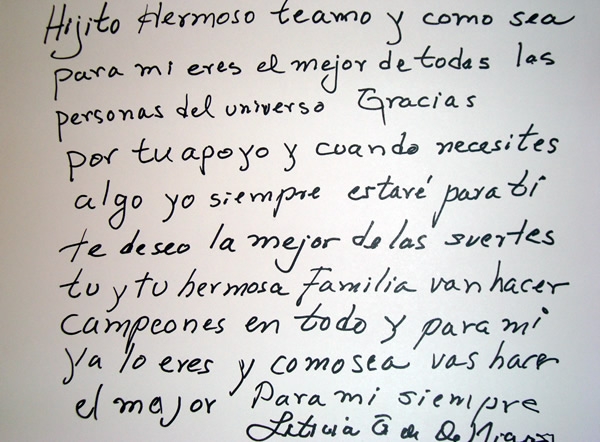 Hijito Hermoso teamo y como sea
para mi eres el mejor de todas las
personas del universo Gracias
por tu apoyo y cuando necesites
algo yo siempre estaré para ti
te deseo la mejor de las suertes
tu y tu hermosa Familia van hacer
campeones en todo y para mi
ya lo eres y comosea vas hacer
el major Para mi siempre
Leticia G de